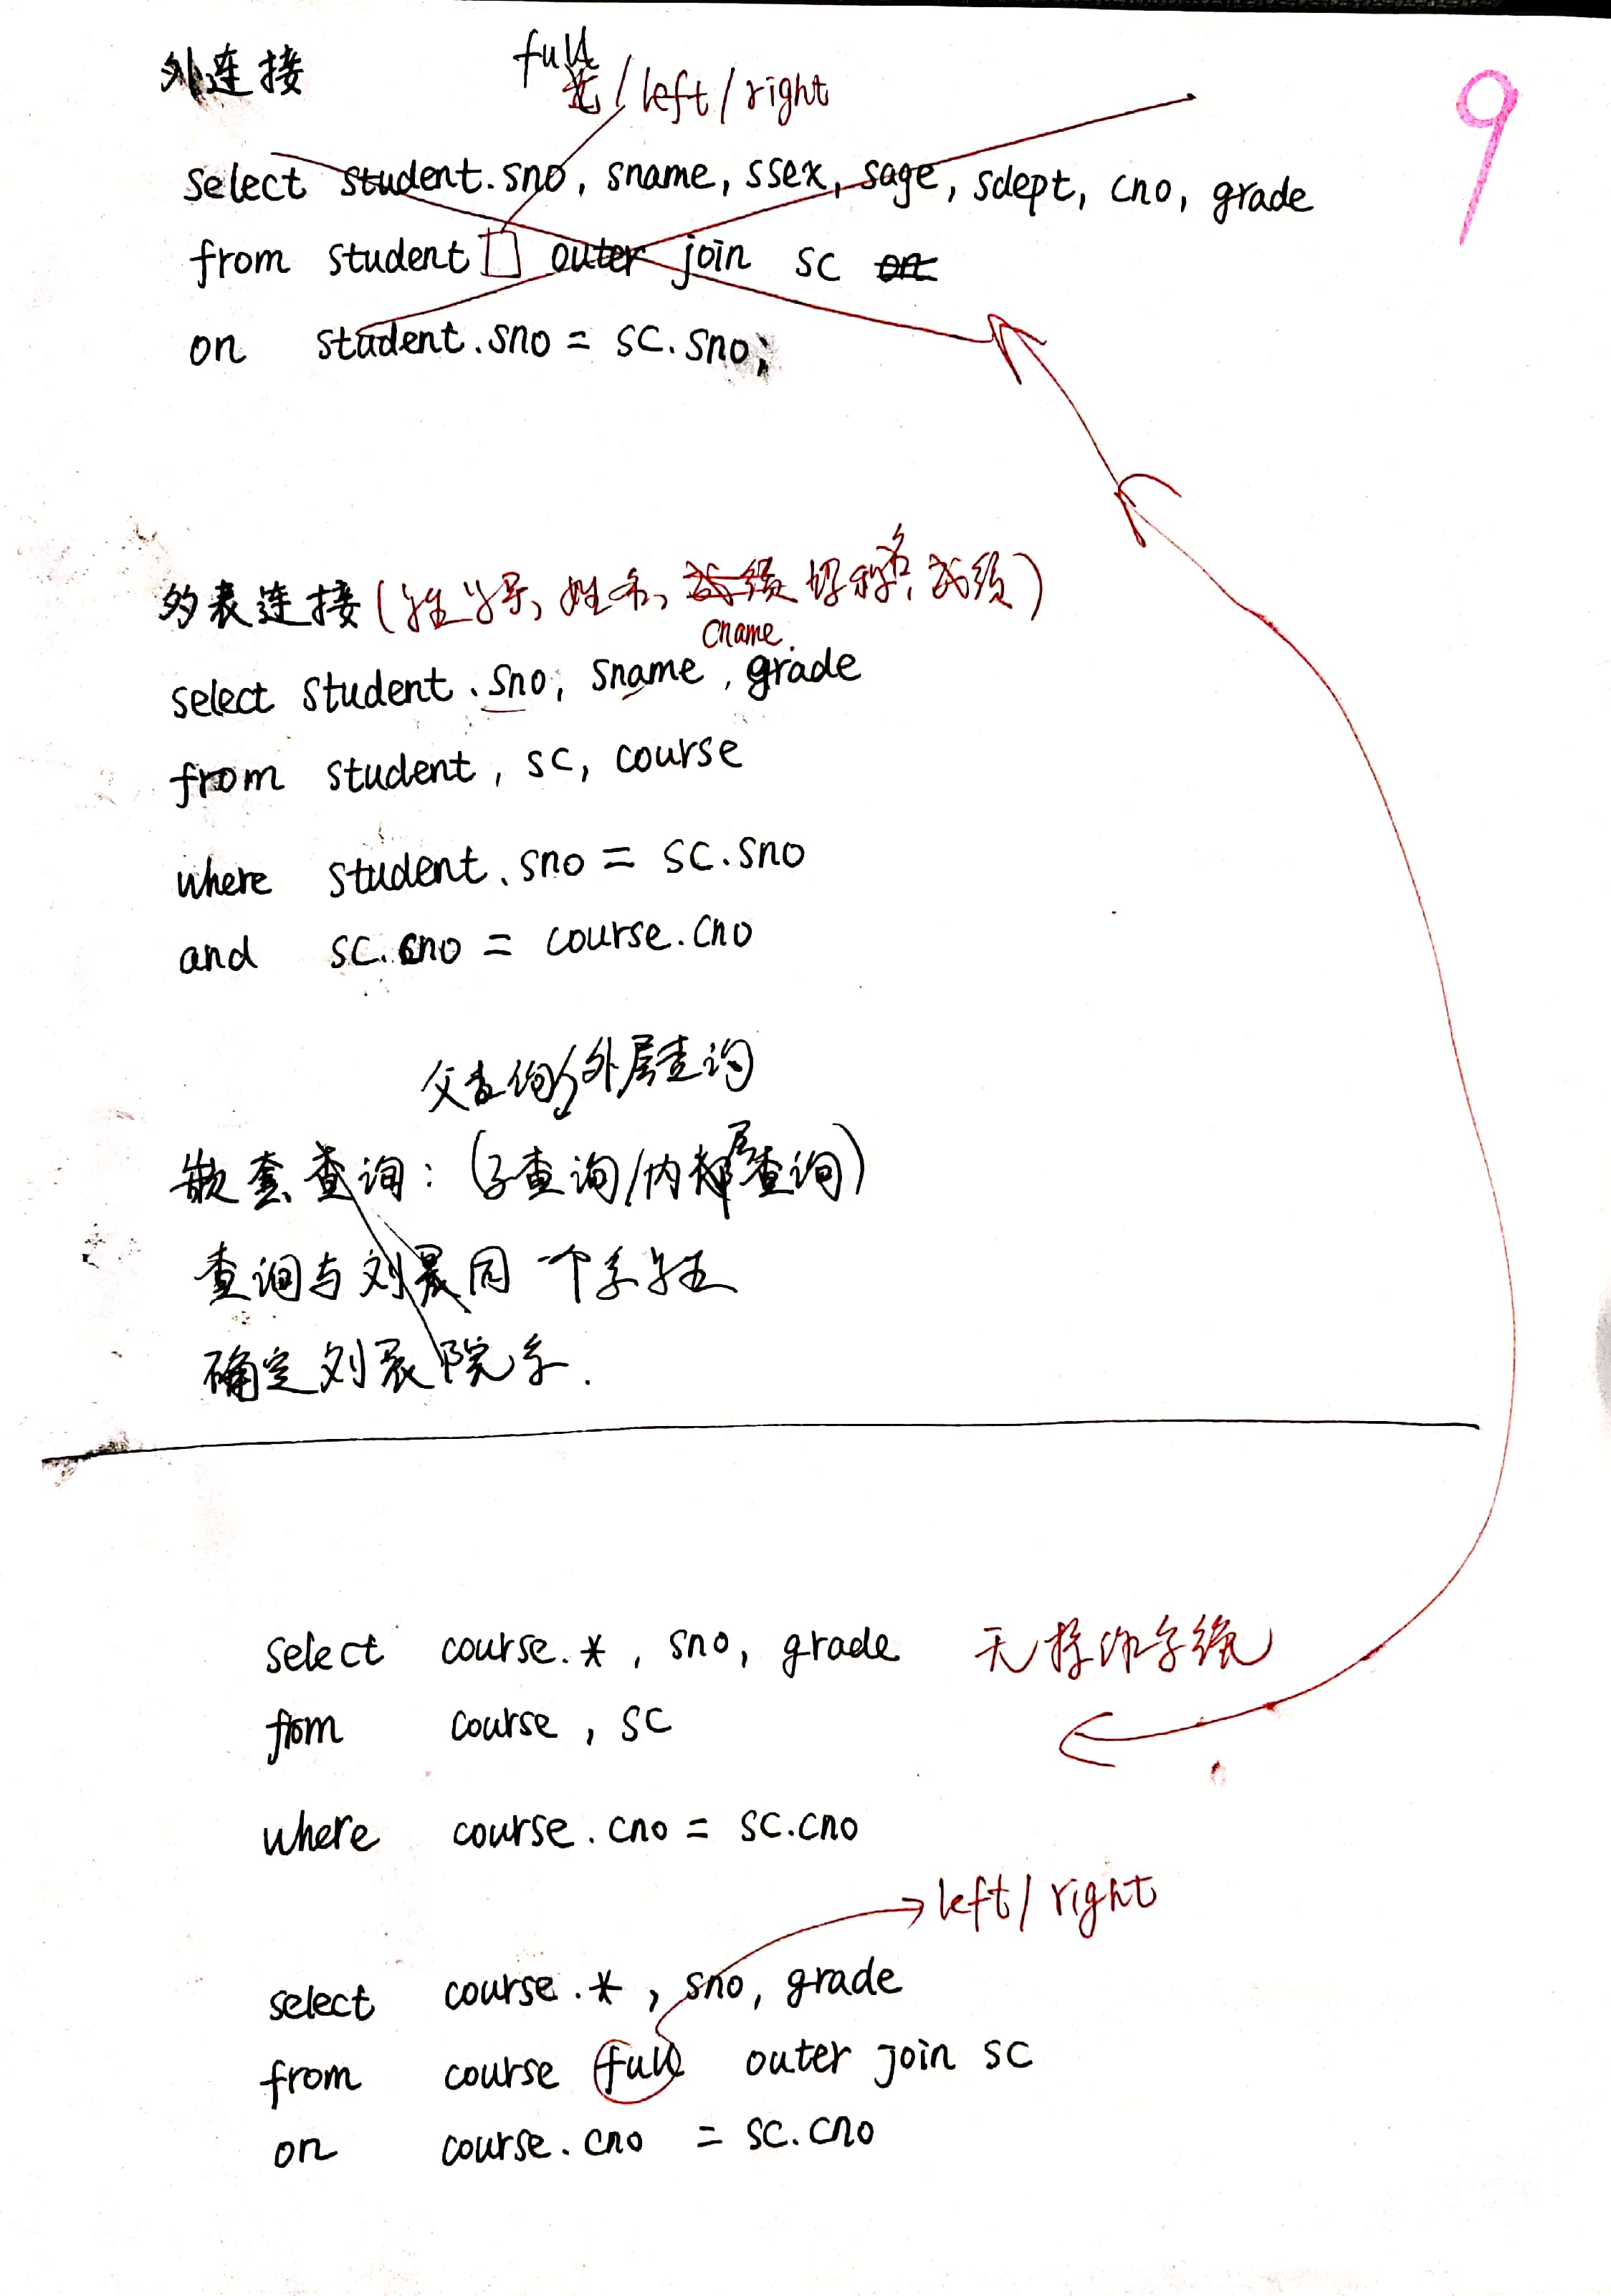 外连接
full/left/right
9
select student.sno, sname, ssex, sage, sdept, cno, grade
from student □ outer join sc
on student.sno = sc.sno;
多表连接(学号、姓名、课程名,成绩)
cname
select student.sno, sname, grade
from student, sc, course
where student.sno = sc.sno
and sc.cno = course.cno
父查询/外层查询
嵌套查询:(子查询/内层查询)
查询与刘晨同一个系学生
确定刘晨院系.
select course.*, sno, grade
from course, sc
where course.cno = sc.cno
left/right
select course.*, sno, grade
from course full outer join sc
on course.cno = sc.cno